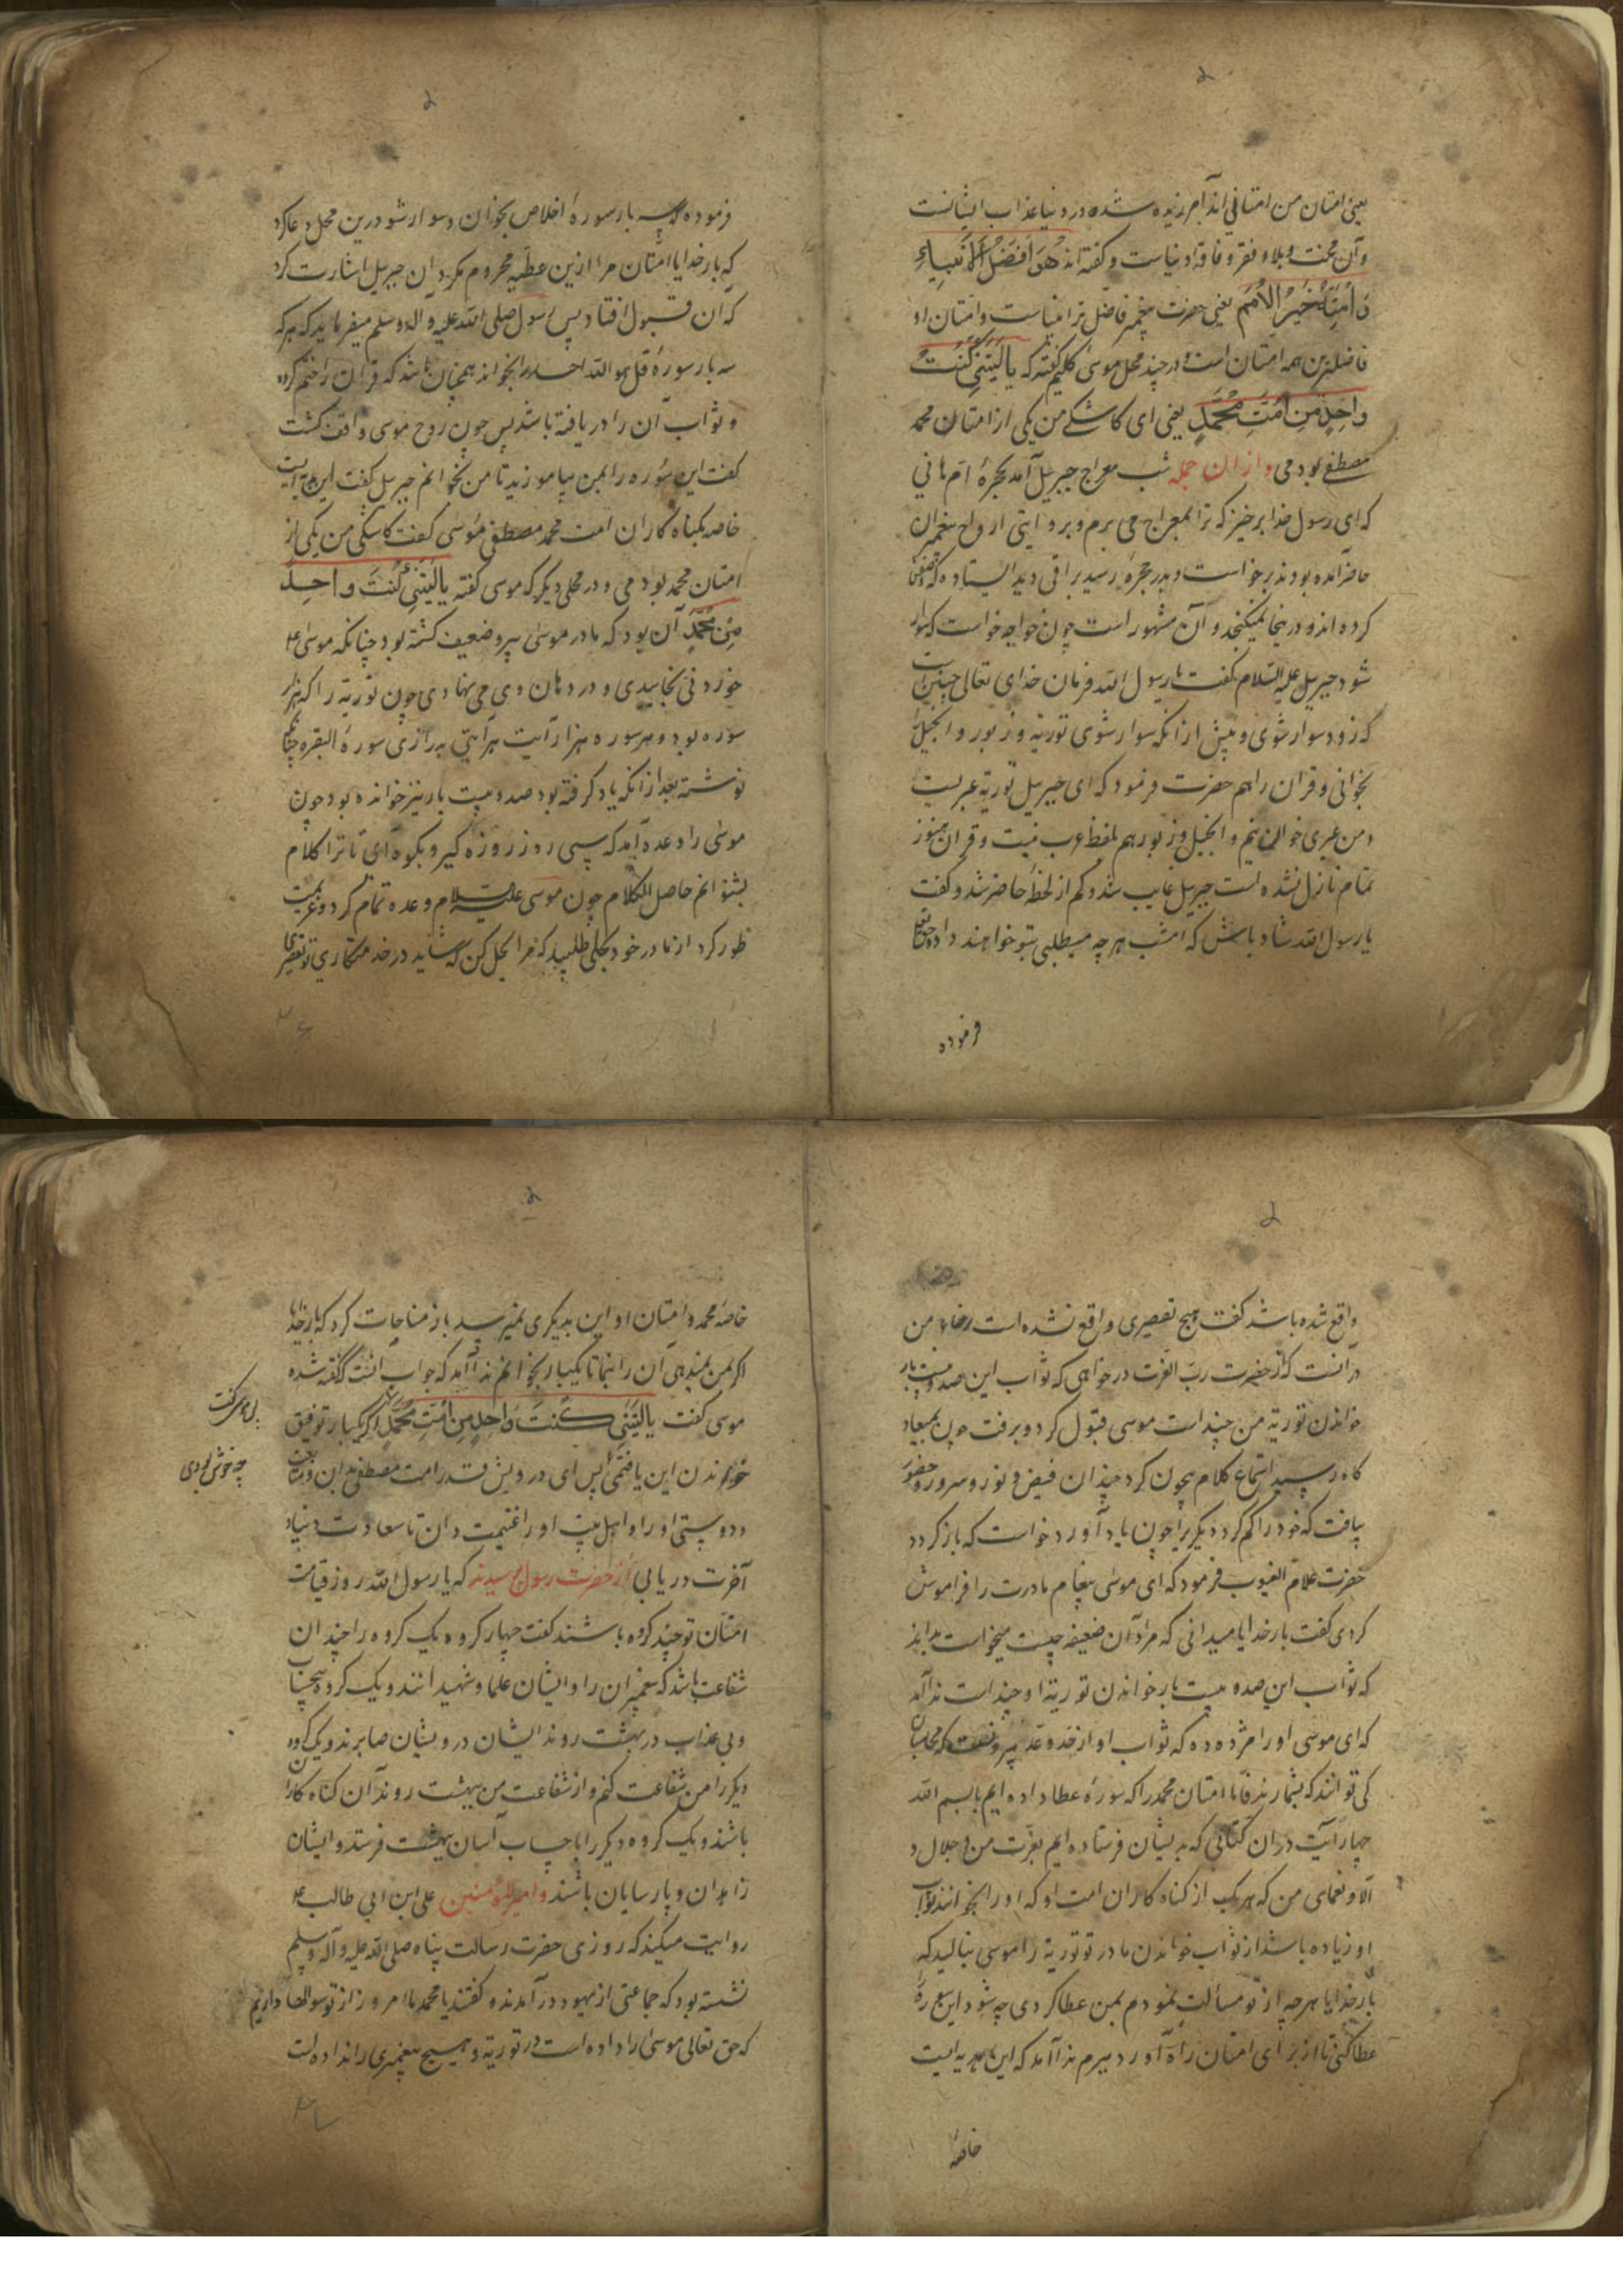 یعنی امتان من امتانی اند آمرزیده شده در دنیا عذاب ایشانست
وآن محنت و بلا و فقر و فاقهٔ دنیاست و گفته اند هُوَ اَفضَلُ الاَنبیاءِ
وَاُمَّتُهُ خَیرُ الاُمَم یعنی حضرت پیغمبر فاضل ترانبیاست وامتان او
فاضلترین همه امتان است و در چند محل موسی کلیم گفته که یا لَیتَنی کُنتُ
واحِدٍ مِن اُمَّتِ مُحَمَّدٍ یعنی ای کاشکی من یکی از امتان محمد
مصطفی بودمی وازان جمله شب معراج جبریل آمد بحجرهٔ ام هانی
که ای رسول خدا برخیز که ترا بمعراج می برم و بروایتی ارواح پیغمبران
حاضر آمده بودند برخواست و بدر حجره رسید براقی دید ایستاده که صفتش
کرده اند و درینجا نمیگنجد و آن مشهور است چون خواجه خواست که سوار
شود جبریل علیه السلام گفت یا رسول الله فرمان خدای تعالی چنین است
که زود سوار شوی و پیش از انکه سوار شوی توریة و زبور و انجیل
بخوانی و قران را هم حضرت فرمود که ای جبریل توریة عبریست
ومن عبری خوان نیم و انجیل و زبور هم بلفظ عرب نیست و قران هنوز
تمام نازل نشده است جبریل غایب شد و کم از لحظهٔ حاضر شد و گفت
یا رسول الله شاد باش که امشب هر چه میطلبی بتو خواهند داد حق تعالی
فرموده
فرموده که سه بار سورهٔ اخلاص بخوان و سوار شو درین محل دعا کرد
که بار خدایا امتان مرا ازین عطیه محروم مگردان جبریل اشارت کرد
که آن قبول افتاد پس رسول صلی الله علیه وآله وسلم میفرماید که هر که
سه بار سورهٔ قل هو الله احد را بخواند همچنان باشد که قران را ختم کرده
و ثواب آن را دریافته باشد پس چون روح موسی واقف گشت
گفت این سوره را بمن بیاموزید تا من بخوانم جبریل گفت این هدیه ایست
خاصه بگناه کاران امت محمد مصطفی موسی گفت کاشکی من یکی از
امتان محمد بودمی و در محلی دیگر که موسی گفته یالَیتَنی کُنتَ واحِدً
مِن مُحَمَّدَ آن بود که مادر موسی پیر و ضعیف گشته بود چنانکه موسی ع
خوردنی بخاییدی و در دهان وی می نهادی چون توریة را که هزار
سوره بود و هر سوره هزار آیت هر آیتی بدرازی سورهٔ البقره چنانکه
نوشته بعد از انکه یاد گرفته بود صد و بیست بار نیز خوانده بود چون
موسی را وعده آمد که سی روز روزه گیر و بکوه آی تا ترا کلام
بشنوانم حاصل الکلام چون موسی علیه السلام وعده تمام کرد و عزیمت
طور کرد از مادر خود بحلی طلبید که مرا بحل کن که شاید در خدمتکاری تو تقصیری
واقع شده باشد گفت هیچ تقصیری واقع نشده است رضاء من
در آنست که از حضرت رب العزت درخواهی که ثواب این صد و بیست بار
خواندن توریة من چند است موسی قبول کرد و برفت چون بمیعاد
گاه رسید استماع کلام بیچون کرد چندان فیض و نور و سرور و حضور
بیافت که خود را گم کرد دیگر را چون یاد آورد خواست که باز گردد
حضرت علام الغیوب فرمود که ای موسی پیغام مادرت را فراموش
کردی گفت بار خدایا میدانی که مراد آن ضعیفه چیست میخواست بداند
که ثواب این صد و بیست بار خواندن توریة او چند است ندا آمد
که ای موسی او را مژده ده که ثواب او از حد و عد بیرونست که محاسبان
کی توانند که بشمارند فأما امتان محمد را که سورهٔ عطا داده ایم با بسم الله
چهار آیت در ان کتابی که بدیشان فرستاده ایم بعزت من و جلال و
آلا و نعمای من که هر یک از گناه کاران امت او که او را بخوانند ثواب
او زیاده باشد از ثواب خواندن مادر تو توریة را موسی بنالید که
بار خدایا هر چه از تو مسألت نمودم بمن عطا کردی چه شود این سوره
عطا کنی تا از برای امتان راه آورد ببرم ندا آمد که این هدیه ایست
خاصهٔ
خاصهٔ محمد و امتان او این بدیگری نمیرسد باز مناجات کرد که بار خدایا
اگر بمن نمیدهی آن را بنما تا یکبار بخوانم ندا آمد که جواب انست که گفته شده
موسی گفت یالَیتَنی کُنتَ واحِدٍ مِن اُمَّتِ مُحَمَّدٍ اگر یکبار توفیق
خواندن این یافتمی پس ای درویش قدر امت مصطفی بدان و متابعت
و دوستی او را و اهل بیت او را غنیمت دان تا سعادت دنیا و
آخرت دریابی از حضرت رسول پرسیدند که یا رسول الله روز قیامت
امتان تو چند گروه باشند گفت چهار گروه یک گروه را چندان
شفاعت باشد که پیغمبران را و ایشان علما و شهیدانند و یک گروه بیحساب
و بی عذاب در بهشت روند ایشان درویشان صابرند و یک گروه
دیگر را من شفاعت کنم و از شفاعت من ببهشت روند آن گناه کاران
باشند و یک گروه دیگر را با حساب آسان ببهشت فرستد و ایشان
زاهدان و پارسایان باشند و امیر المؤمنین علی ابن ابی طالب ع
روایت میکند که روزی حضرت رسالت پناه صلی الله علیه وآله وسلم
نشسته بود که جماعتی از یهود در آمدند و گفتند یا محمد ما امروز از تو سوالها داریم
که حق تعالی موسی را داده است در توریة و هیچ پیغمبری را نداده است
چه خوش بودی